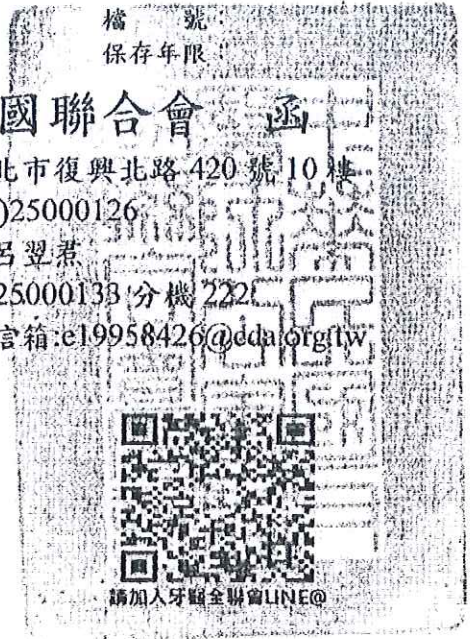 檔 號:
保存年限:
國聯合會 函
北市復興北路 420 號 10 樓
)25000126
呂翌君
25000133 分機 222
信箱:e19958426@cda.org.tw
請加入牙醫全聯會LINE@